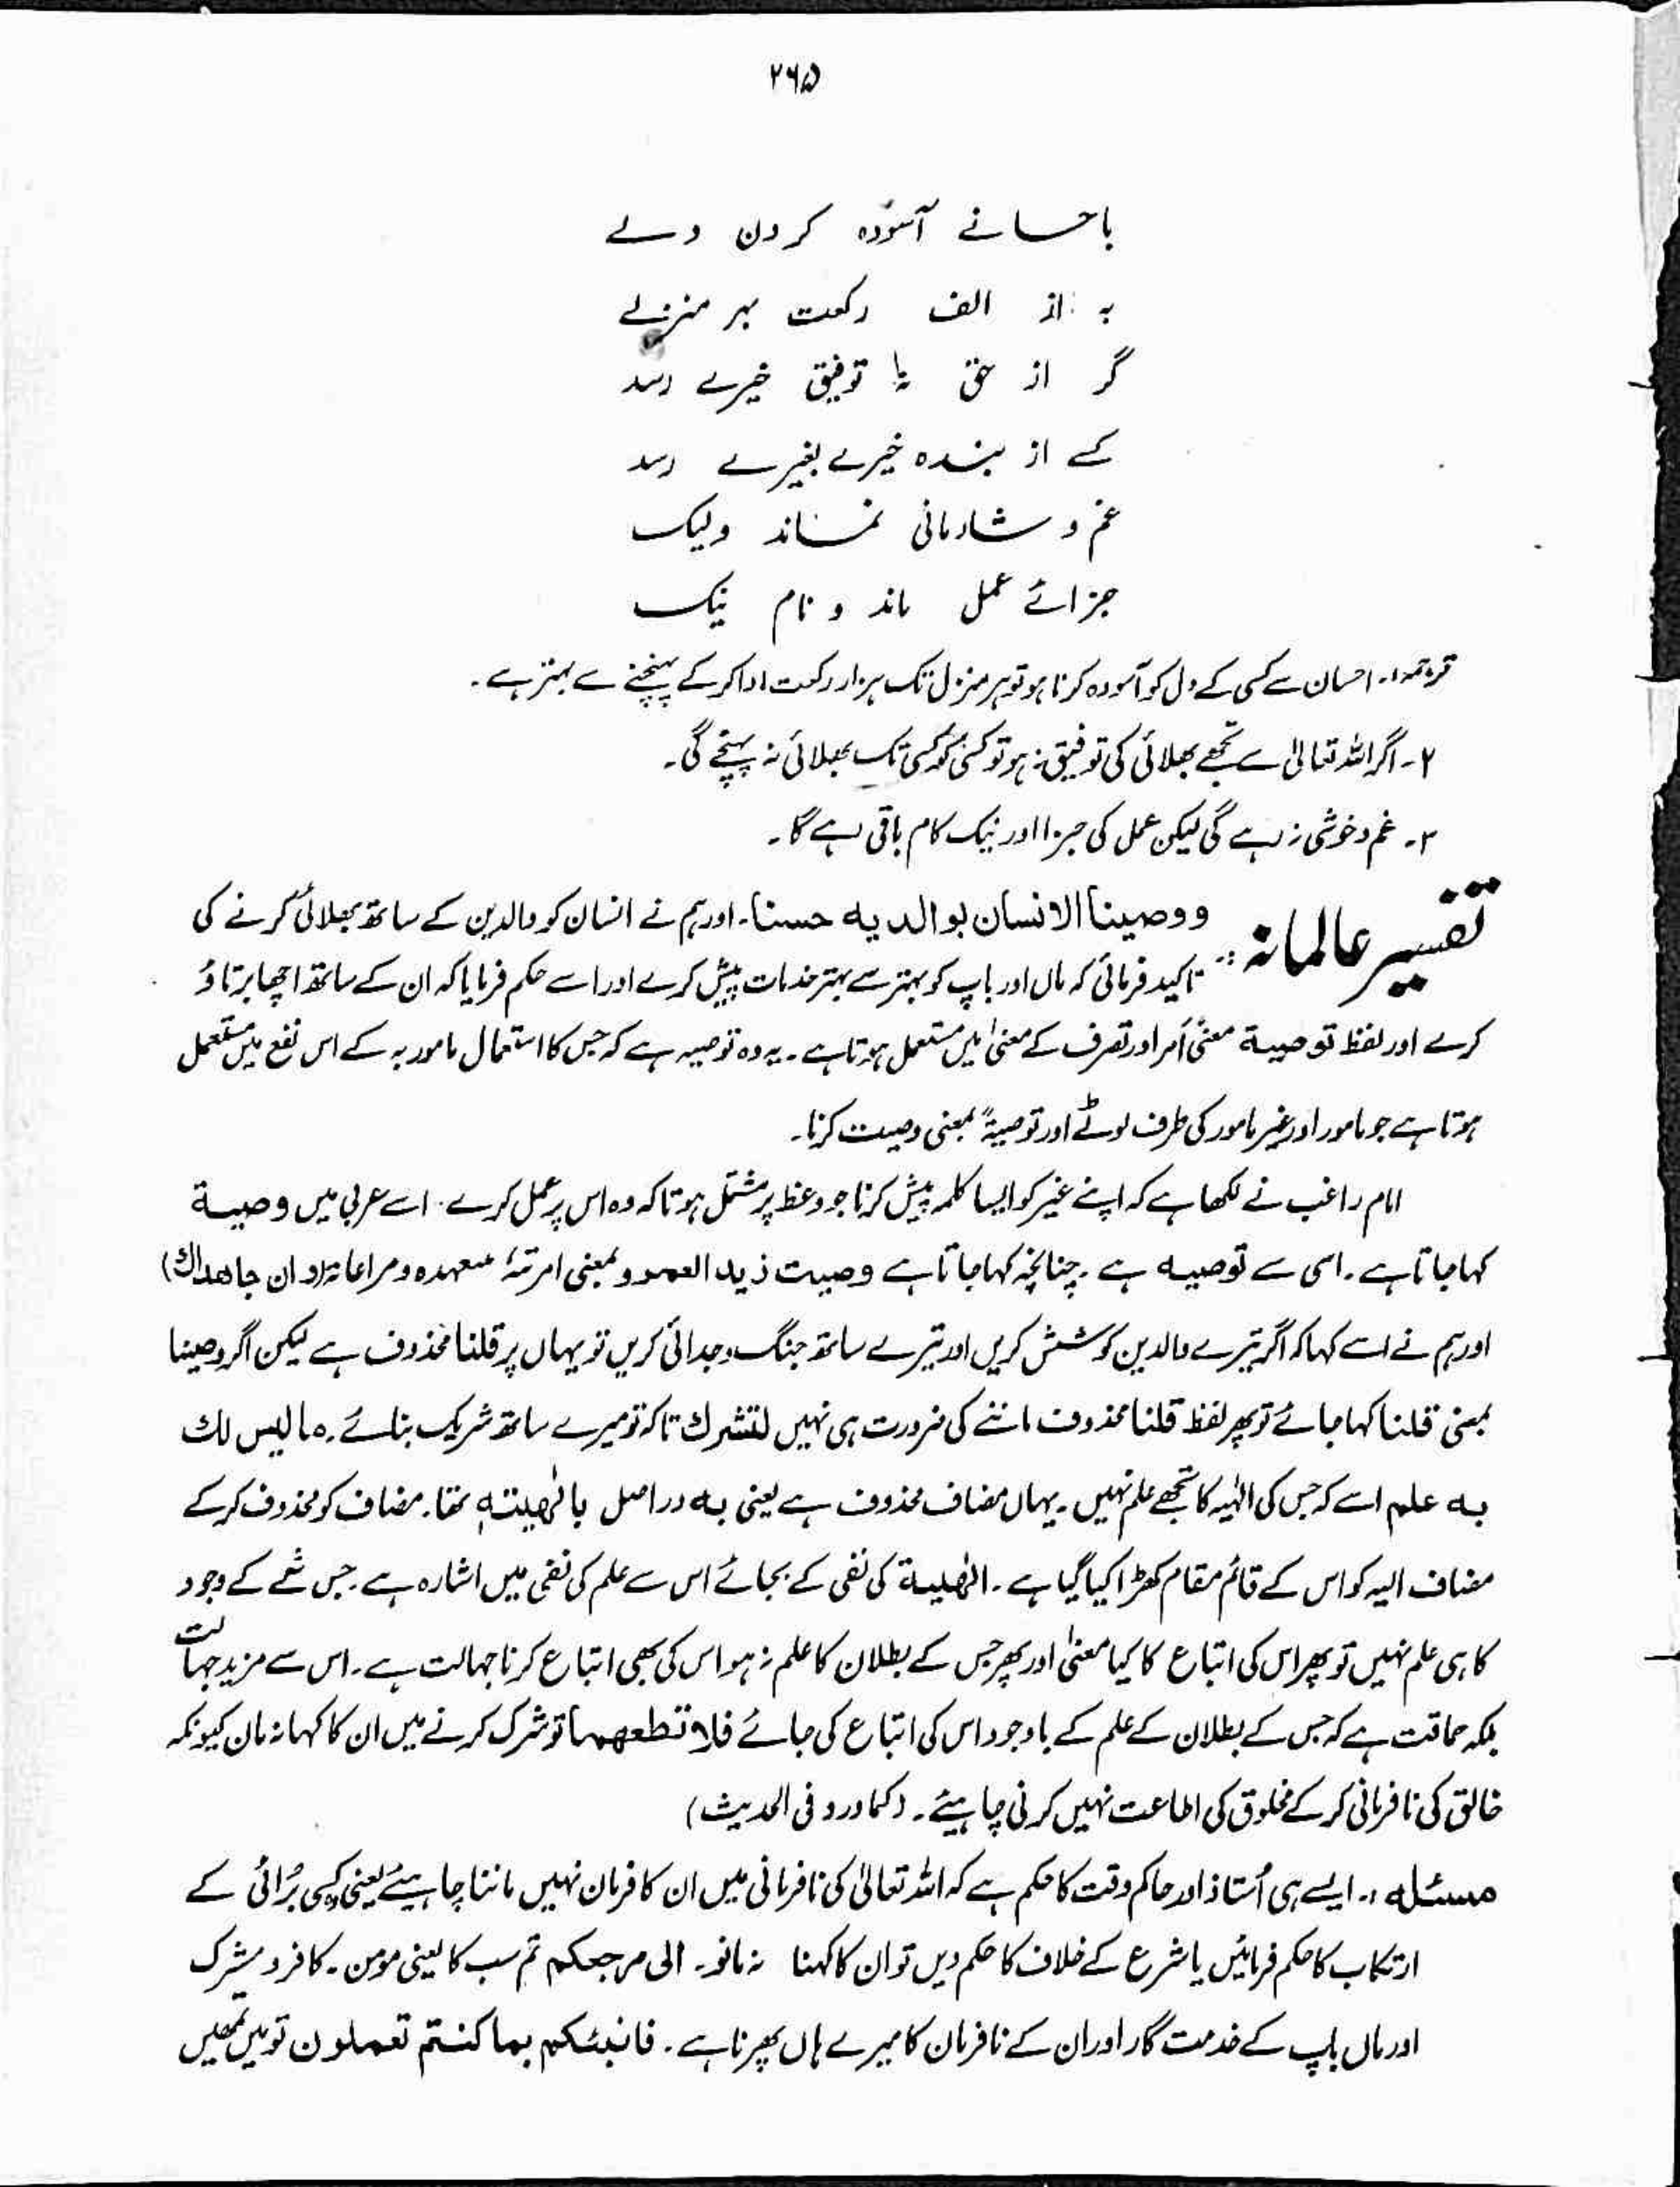 ۲۶۵
باحسانے آسودہ کردن دلے
بہ از الف رکعت بہر منزلے
گر از حق نہ توفیق خیرے رسد
کے از بندہ خیرے بغیرے رسد
غم و شادمانی نماند ولیک
جزائے عمل ماند و نام نیک
ترجمہ ۱۔ احسان سے کسی کے دل کو آسودہ کرنا ہو تو ہر منزل تک ہزار رکعت ادا کر کے پہنچنے سے بہتر ہے۔
۲۔ اگر اللہ تعالیٰ سے تجھے بھلائی کی توفیق نہ ہو تو کسی کو کسی تک بھلائی نہ پہنچے گی۔
۳۔ غم و خوشی نہ رہے گی لیکن عمل کی جزا اور نیک کام باقی رہے گا۔
تفسیر عالمانہ :۔ ووصینا الانسان بوالدیہ حسنا۔ اور ہم نے انسان کو والدین کے ساتھ بھلائی کرنے کی
تاکید فرمائی کہ ماں اور باپ کو بہتر سے بہتر خدمات پیش کرے اور اسے حکم فرمایا کہ ان کے ساتھ اچھا برتاؤ
کرے اور لفظ توصیۃ معنًی اَمر اور تصرف کے معنیٰ میں مستعمل ہوتا ہے۔ یہ وہ توصیہ ہے کہ جس کا استعمال مامور بہ کے اس نفع میں مستعمل
ہوتا ہے جو مامور اور غیر مامور کی طرف لوٹے اور توصیۃً بمعنی وصیت کرنا۔
امام راغب نے لکھا ہے کہ اپنے غیر کو ایسا کلمہ پیش کرنا جو وعظ پر مشتمل ہو تاکہ وہ اس پر عمل کرے۔ اسے عربی میں وصیۃ
کہا جاتا ہے۔ اسی سے توصیہ ہے۔ چنانچہ کہا جاتا ہے وصیت زیدا لعمرو بمعنی امرتہٗ بتعهدہ و مراعاتہ (وان جاهداك)
اور ہم نے اسے کہا کہ اگر تیرے والدین کوشش کریں اور تیرے ساتھ جنگ و جدائی کریں تو یہاں پر قلنا محذوف ہے لیکن اگر وصینا
بمعنی قلنا کہا جائے تو پھر لفظ قلنا محذوف ماننے کی ضرورت ہی نہیں لتشرك تاکہ تو میرے ساتھ شریک بنائے۔ مالیس لك
بہ علم اسے کہ جس کی الٰہیہ کا تجھے علم نہیں۔ یہاں مضاف محذوف ہے یعنی بہ دراصل بالٰھیتہٖ تھا۔ مضاف کو محذوف کر کے
مضاف الیہ کو اس کے قائم مقام کھڑا کیا گیا ہے۔ الٰھیۃ کی نفی کے بجائے اس سے علم کی نفی میں اشارہ ہے۔ جس شے کے وجود
کا ہی علم نہیں تو پھر اس کی اتباع کا کیا معنیٰ اور پھر جس کے بطلان کا علم نہ ہو اس کی بھی اتباع کرنا جہالت ہے۔ اس سے مزید جہالت
بلکہ حماقت ہے کہ جس کے بطلان کے علم کے باوجود اس کی اتباع کی جائے فلا تطعهما تو شرک کرنے میں ان کا کہا نہ مان کیونکہ
خالق کی نافرمانی کر کے مخلوق کی اطاعت نہیں کرنی چاہیئے۔ (کما ورد فی الحدیث)
مسئلہ :۔ ایسے ہی اُستاذ اور حاکم وقت کا حکم ہے کہ اللہ تعالیٰ کی نافرمانی میں ان کا فرمان نہیں ماننا چاہیئے یعنی وہ کسی بُرائی کے
ارتکاب کا حکم فرمائیں یا شرع کے خلاف کا حکم دیں تو ان کا کہنا نہ مانو۔ الی مرجعکم تم سب کا یعنی مومن۔ کافر و مشرک
اور ماں باپ کے خدمت گار اور ان کے نافرمان کا میرے ہاں پھرنا ہے۔ فانبئکم بما کنتم تعملون تو میں تمھیں